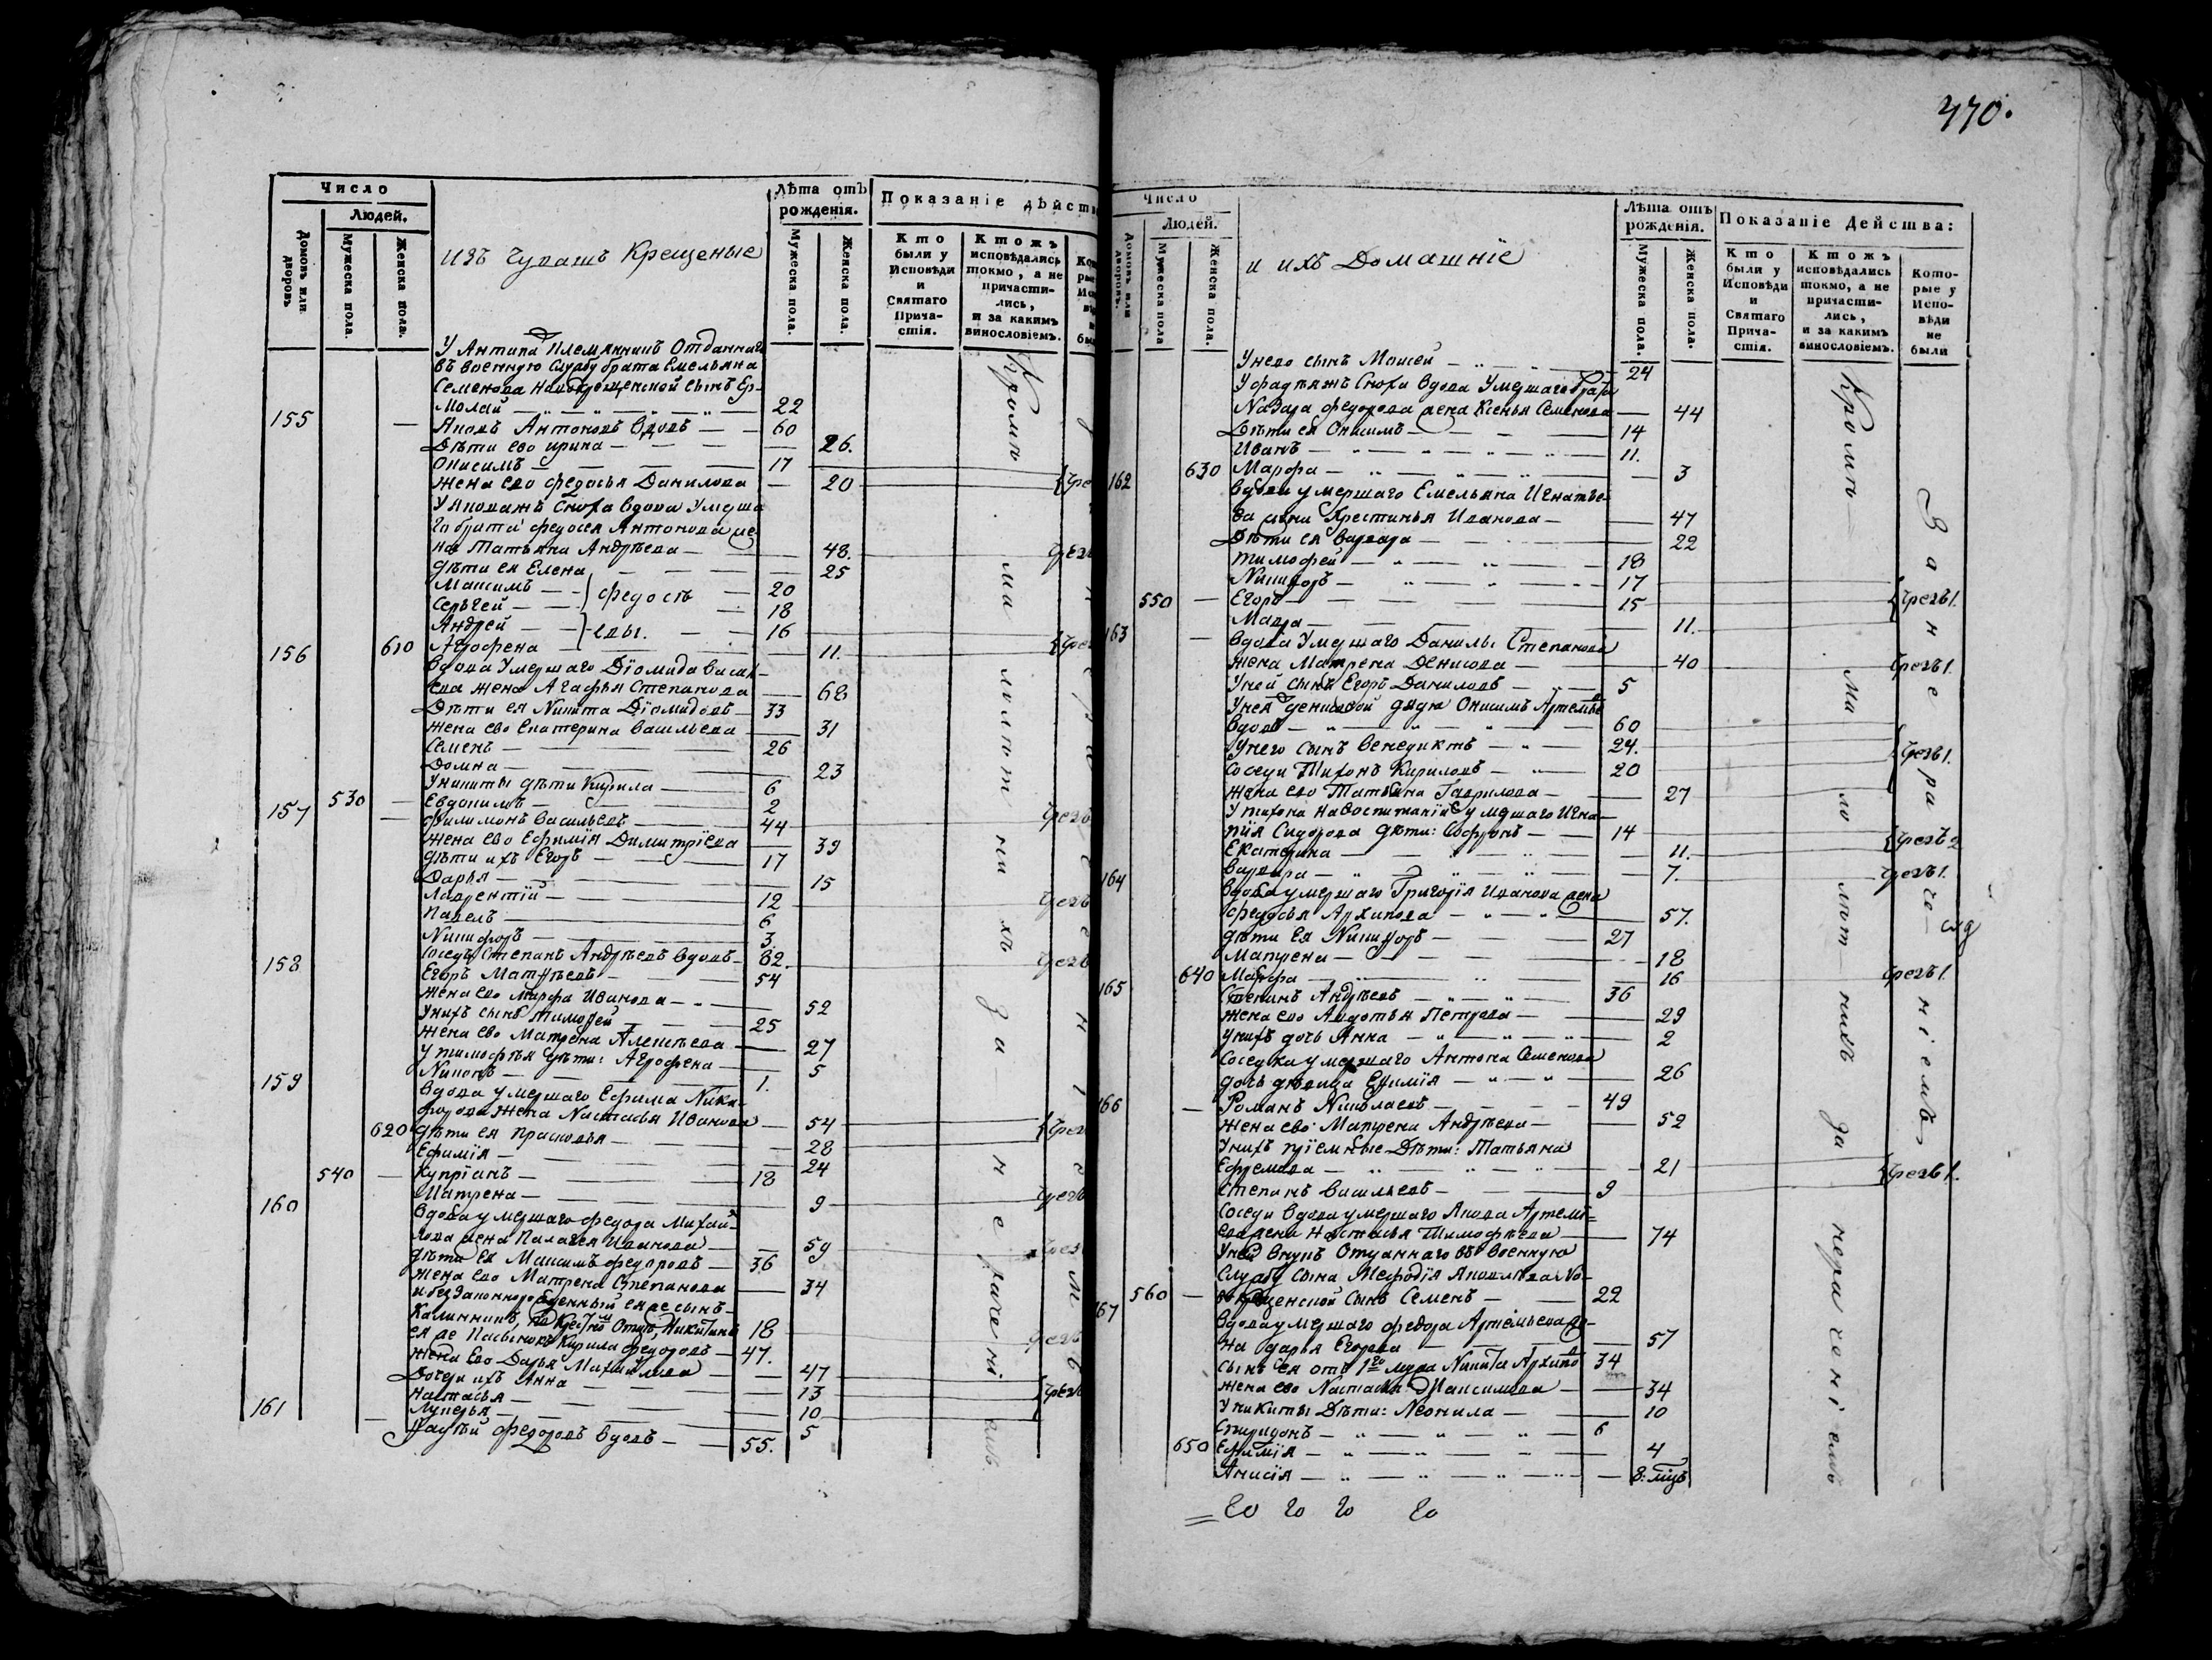 470.
Число
Людей.
Домовъ или дворовъ
Мужеска пола.
Женска пола.
изъ Чувашъ Крещеные
Лѣта отъ рожденія.
Мужеска пола.
Женска пола.
Показаніе дѣйст
Кто были у Исповѣди и Святаго Прича-стія.
Ктожъ исповѣдались токмо, а не причасти-лись, и за какимъ винословіемъ.
У Антипа Племянникъ Отданнаго
въ военную службу брата Емельяна
Семенова новокрещенской сынъ Ер-
молай 22
155 Яковъ Антоновъ вдовъ 60
Дѣти ево Ирина 26.
Онисимъ 17
жена ево Федосья Данилова 20
У Якова жъ Сноха вдова Умерша
го брата Федосея Антонова же
на Татьяна Андрѣева 48.
дѣти ея Елена 25
Максимъ 20
Сергей 18
Андрей 16
Федосѣ
евы.
610 Агрофена 11.
156 вдова Умершаго Діомида Васил-
ева жена Агафья Степанова 68
Дѣти ея Никита Діомидовъ 33
жена ево Екатерина Васильева 31
Семенъ 26
Домна 23
У никиты дѣти Кирила 6
530 Евдокимъ 2
157 Филимонъ Васильевъ 44
жена ево Ефимія Димитріева 39
дѣти ихъ Егоръ 17
Дарья 15
Лаврентій 12
Павелъ 6
Никифоръ 3.
сосѣдъ Степанъ Андрѣевъ вдовъ 82.
158 Егоръ Матвѣевъ 54
жена ево Марфа Иванова 52
У нихъ сынъ тимофей 25
жена ево Матрена Алексѣева 27
у тимофѣя дѣти: Агрофена 5
Никонъ 1.
159 вдова умершаго Ефима Ники-
форова жена Настасья Иванова 54
620 дѣти ея Прасковья 28
Ефимія 24
540 Купріанъ 18
Матрена 9
160 вдова умершаго Федора Михай-
лова жена Палагея Иванова 59
дѣти ея Максимъ Федоровъ 36
жена ево Матрена Степанова 34
и беззаконнорожденный ея же сынъ
Калинникъ, по крестно Отцѣ, Никитинъ 18
ея же Пасынокъ Кирила Федоровъ 47.
жена ево Дарья Михайлова 47
Дочери ихъ Анна 13
Настасья 10
Лукерья 5
161 Фадѣй Федоровъ вдовъ 55.
Кромѣ
Число
Людей.
Домовъ или дворовъ.
Мужеска пола
Женска пола.
и ихъ Домашніе
Лѣта отъ рожденія.
Мужеска пола.
Женска пола.
Показаніе Дейсшва:
Кто были у Исповѣди и Святаго Прича-стія.
Ктожъ исповѣдались токмо, а не причасти-лись, и за какимъ винословіемъ.
Кото-рые у Испо-вѣди не были
У нево сынъ Моисей 24
У Фадѣя жъ Сноха вдова Умершаго брата
Назара Федорова жена Ксенья Семенова 44
Дѣти ея Онисимъ 14
Иванъ 11.
630 Марфа 3
162 вдова умершаго Емельяна Игнатье-
ва жена Крестинья Иванова 47
Дѣти ея Варвара 22
тимофей 18
Никифоръ 17
550 Егоръ 15
Мавра 11.
163 вдова Умершаго Данилы Степанова
жена Матрена Денисова 40
У ней сынъ Егоръ Даниловъ 5
У нея денисовой дядя Онисимъ Артемьевъ
вдовъ 60
У него сынъ Венедиктъ 24.
сосѣди Тихонъ Кириловъ 20
жена ево Татьяна Гаврилова 27
У тихона на воспитаніи умершаго Игна-
тія Сидорова дѣти: Софронъ 14
Екатерина 11.
Варвара 7.
164 вдова умершаго Григорія Иванова жена
Федосья Архипова 57.
дѣти ея Никифоръ 27
Матрена 18
640 Марфа 16
165 Степанъ Андрѣевъ 36
жена ево Авдотья Петрова 29
У нихъ дочь Анна 2
Сосѣдка умершаго Антона Семенова
дочь дѣвица Ефимія 26
166 Романъ Николаевъ 49
жена ево Матрена Андрѣева 52
У нихъ пріемные Дѣти: Татьяна
Ефремова 21
Степанъ Васильевъ 9
сосѣди вдова умершаго Якова Артемь=
ева жена Настасья Тимофѣева 74
У ней внукъ Отданнаго въ военную
Службу сына Мефодія Яковлева Но-
560 вокрещенской Сынъ Семенъ 22
167 вдова умершаго Федора Артемьева же-
на дарья Егорова 57
сынъ ея отъ 1го мужа Никита Архиповъ 34
жена ево Настасья Максимова 34
У никиты Дѣти: Неонила 10
Спиридонъ 6
650 Ефимія 4
Анисія 8: мцъ
чрезъ 1.
чрезъ 1.
чрезъ 1.
чрезъ 2
чрезъ 1.
чрезъ 1.
чрезъ 1.
Кромѣ малолѣтнихъ за нераченіемъ
За нераченіемъ